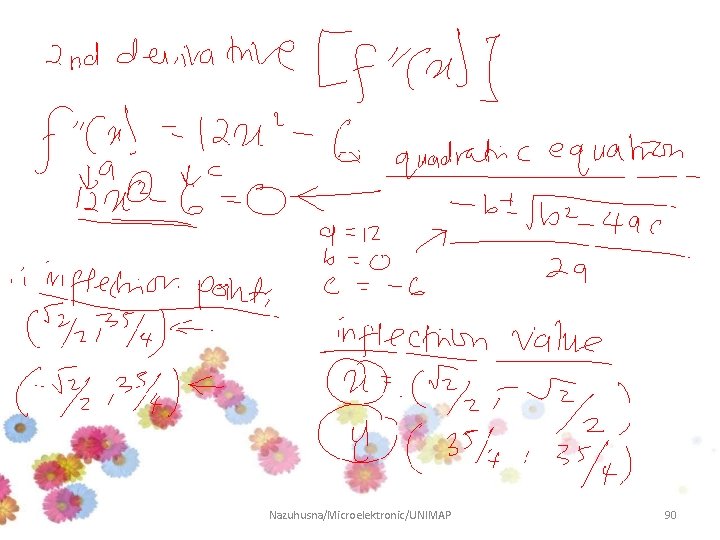 2nd derivative [f"(x)]
f"(x) = 12x² - 6
a c
12x² - 6 = 0 ← quadratic equation
-b ± √b² - 4ac / 2a
a = 12
b = 0
c = -6
∴ inflection point,
(√2/2, 35/4) ←
(-√2/2, 35/4) ←
inflection value
x = (√2/2, -√2/2)
y (35/4, 35/4)
Nazuhusna/Microelektronic/UNIMAP 90